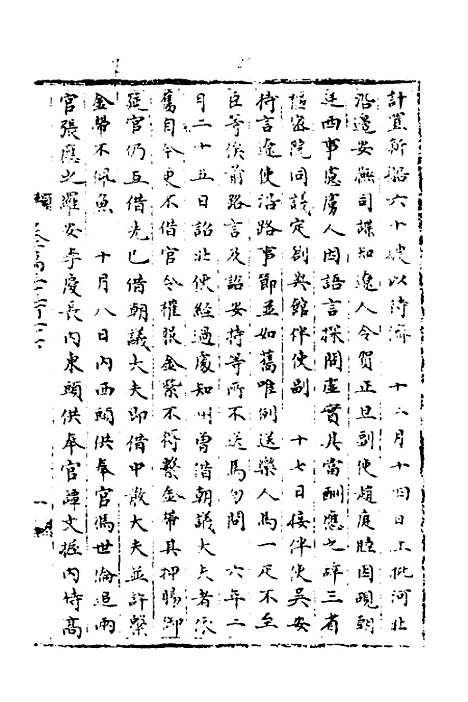 計置新船六十艘以待濟　十二月十四日上批河北
沿邊安撫司諜知遼人令賀正旦副使趙庭睦因覘朝
廷西事慮虜人因語言探問虛實具當酬應之辭三省
樞密院同議定劄與館伴使副　十七日接伴使吳安
持言遼使沿路事節並如舊唯例送藥人馬一疋不至
臣等俟前路言及詔安持等所不送馬勿問　六年二
月二十五日詔北使經過處知州曾借朝議大夫者依
舊自今更不借官令權服金紫不得繫金帶其押賜御
筵官仍互借先已借朝議大夫即借中散大夫並許繫
金帶不佩魚　十月八日內西頭供奉官馮世淪追兩
官張應之羅安李慶長內東頭供奉官譚文拯內侍高